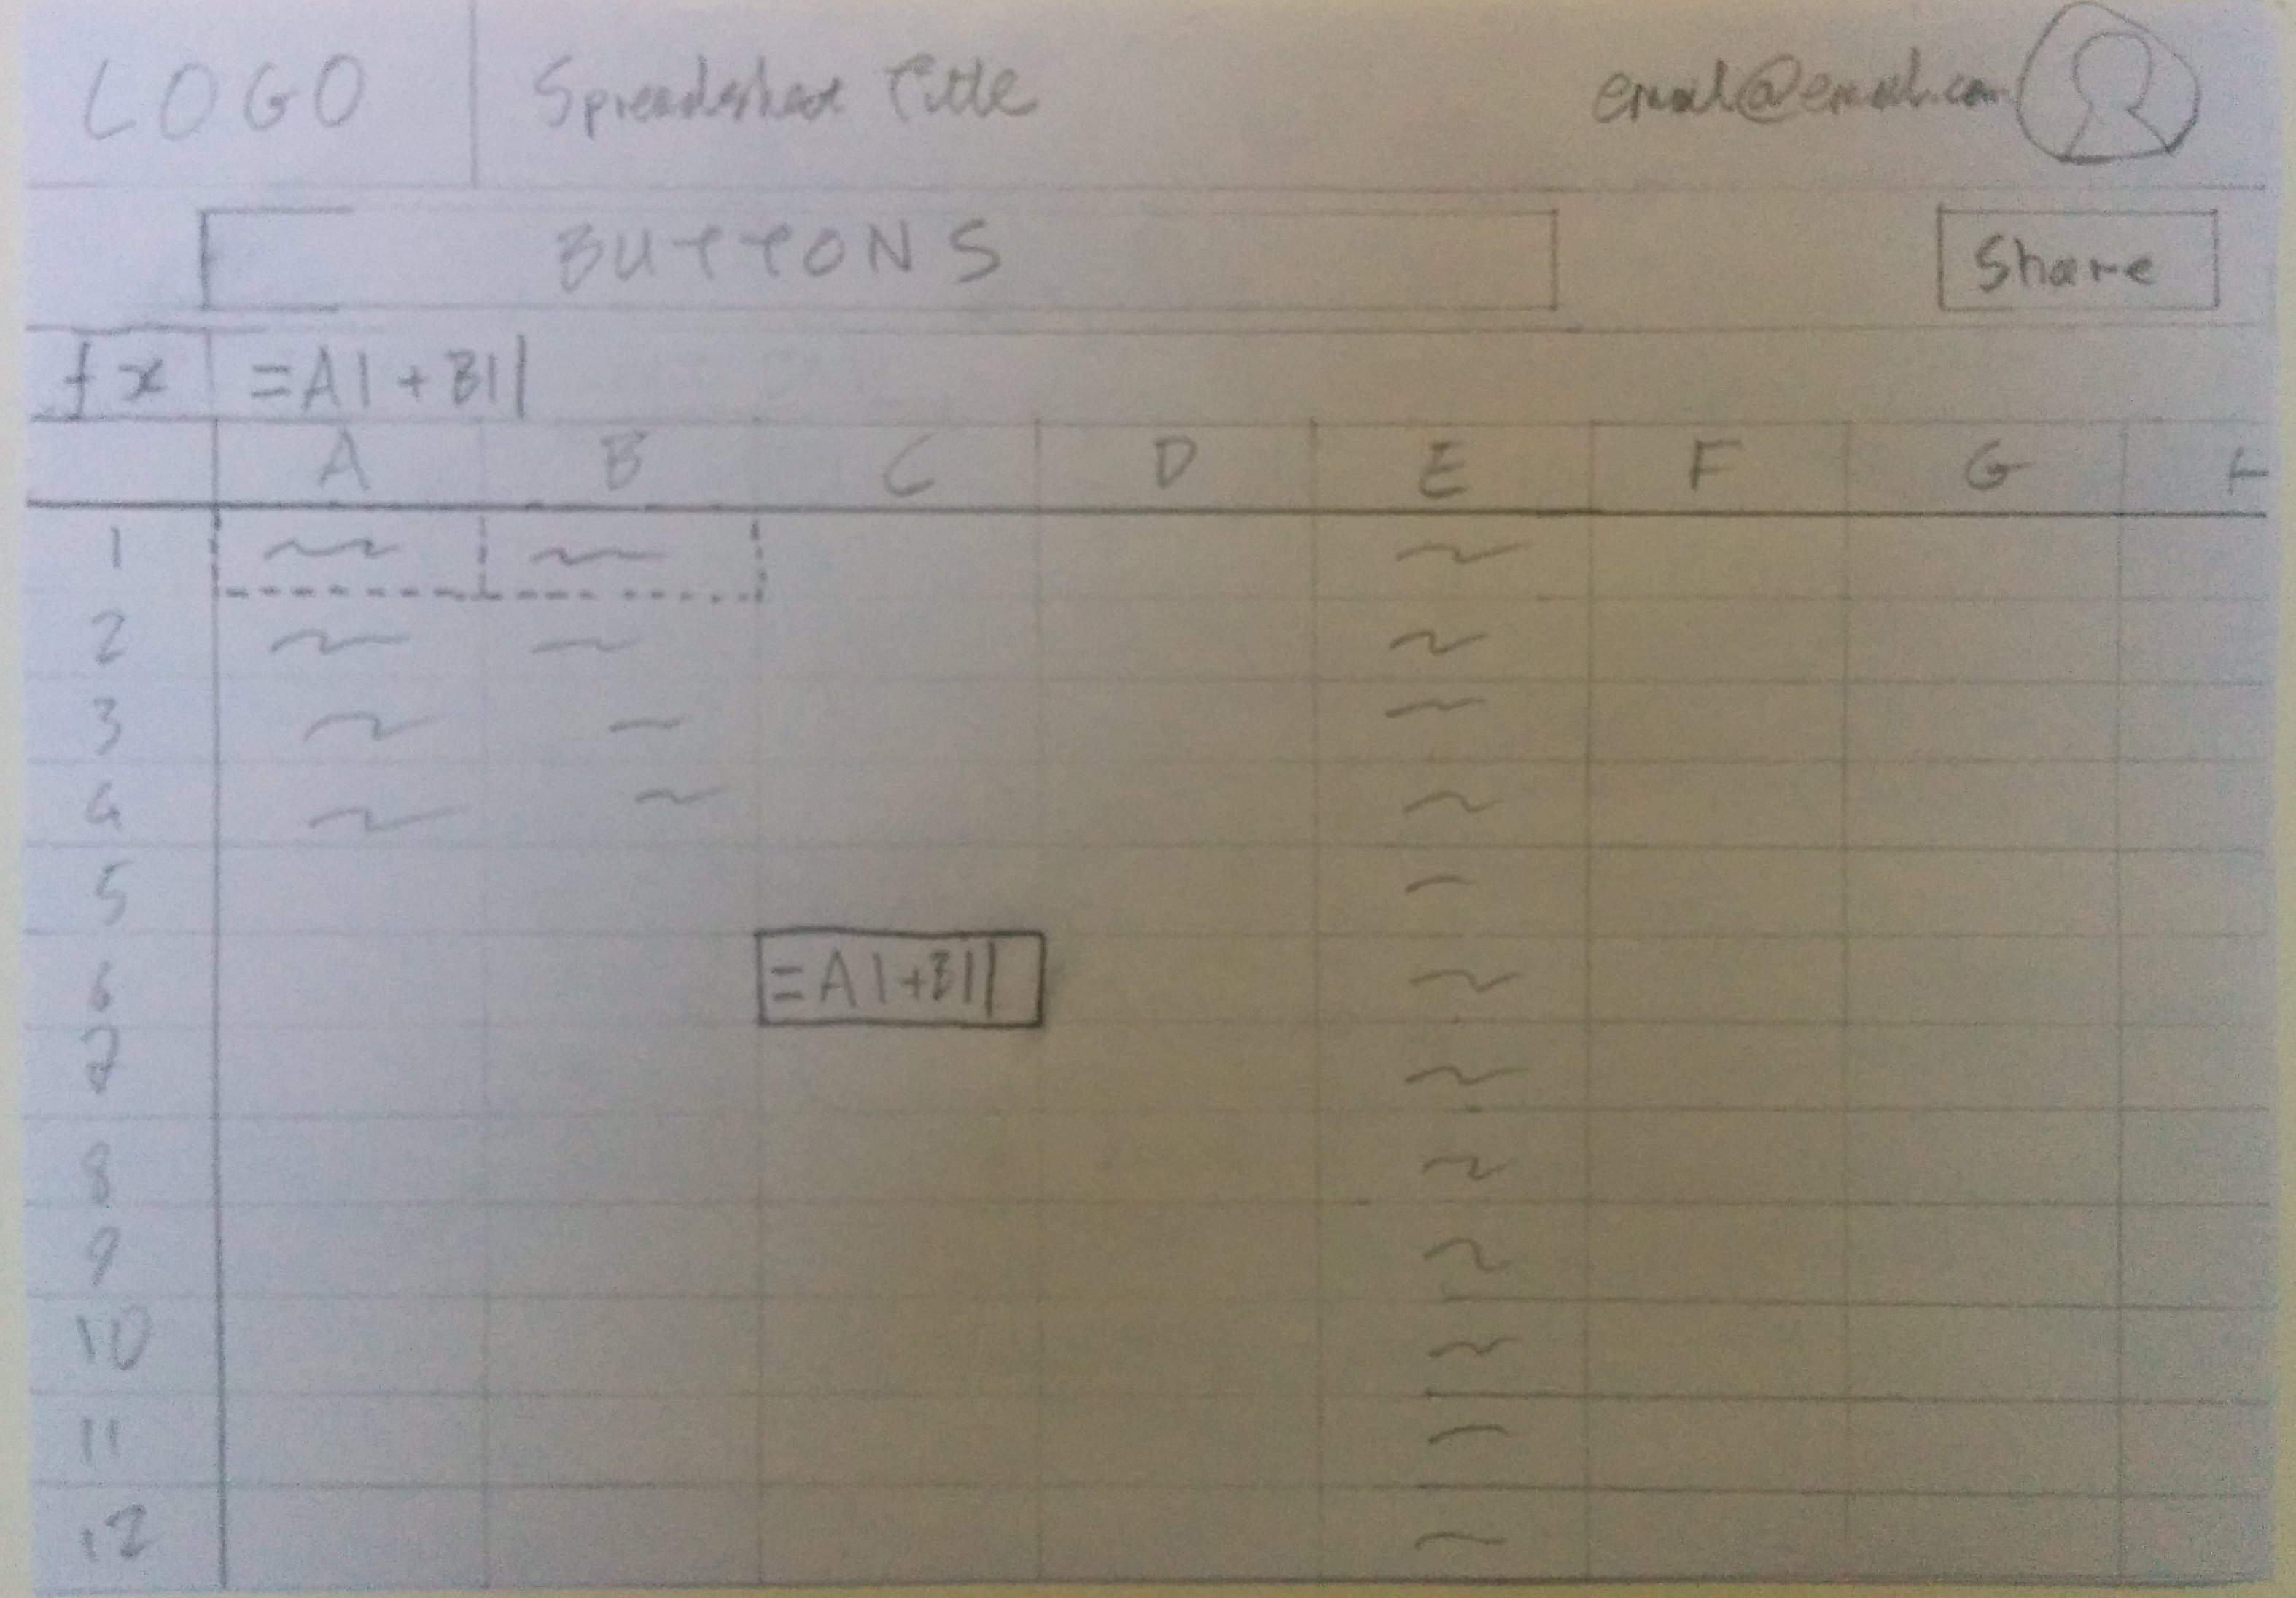 LOGO
Spreadsheet Title
email@email.com
BUTTONS
Share
fx
=A1+B1|
A B C D E F G
1
2
3
4
5
6 =A1+B1|
7
8
9
10
11
12